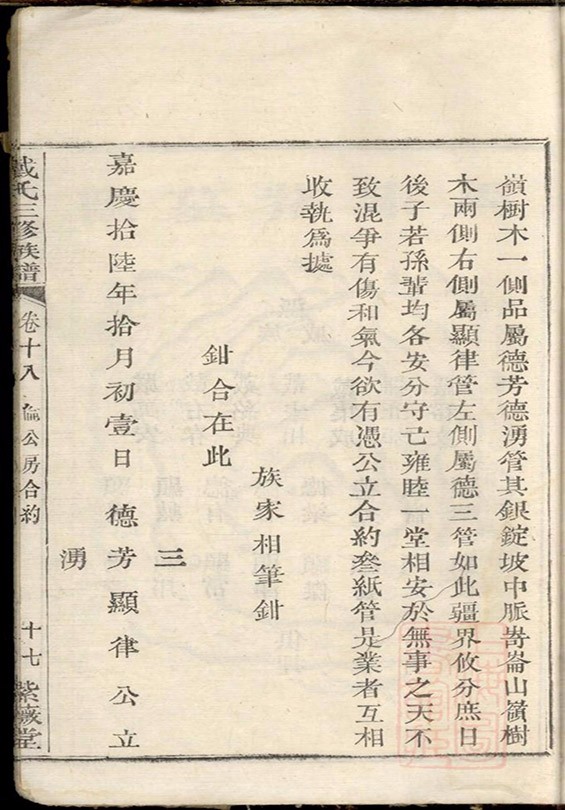 嶺樹木一側品屬德芳德湧管其銀錠坡中脈嵜崙山嶺樹
木兩側右側屬顯律管左側屬德三管如此疆界攸分庶日
後子若孫輩均各安分守己雍睦一堂相安於無事之天不
致混爭有傷和氣今欲有憑公立合約叄紙管是業者互相
收執為㨿
族家相筆鉗
鉗合在此
三
嘉慶拾陸年拾月初壹日 德芳顯律公立
湧
戴氏三修族譜 卷十八 倫公房合約 十七 紫薇堂